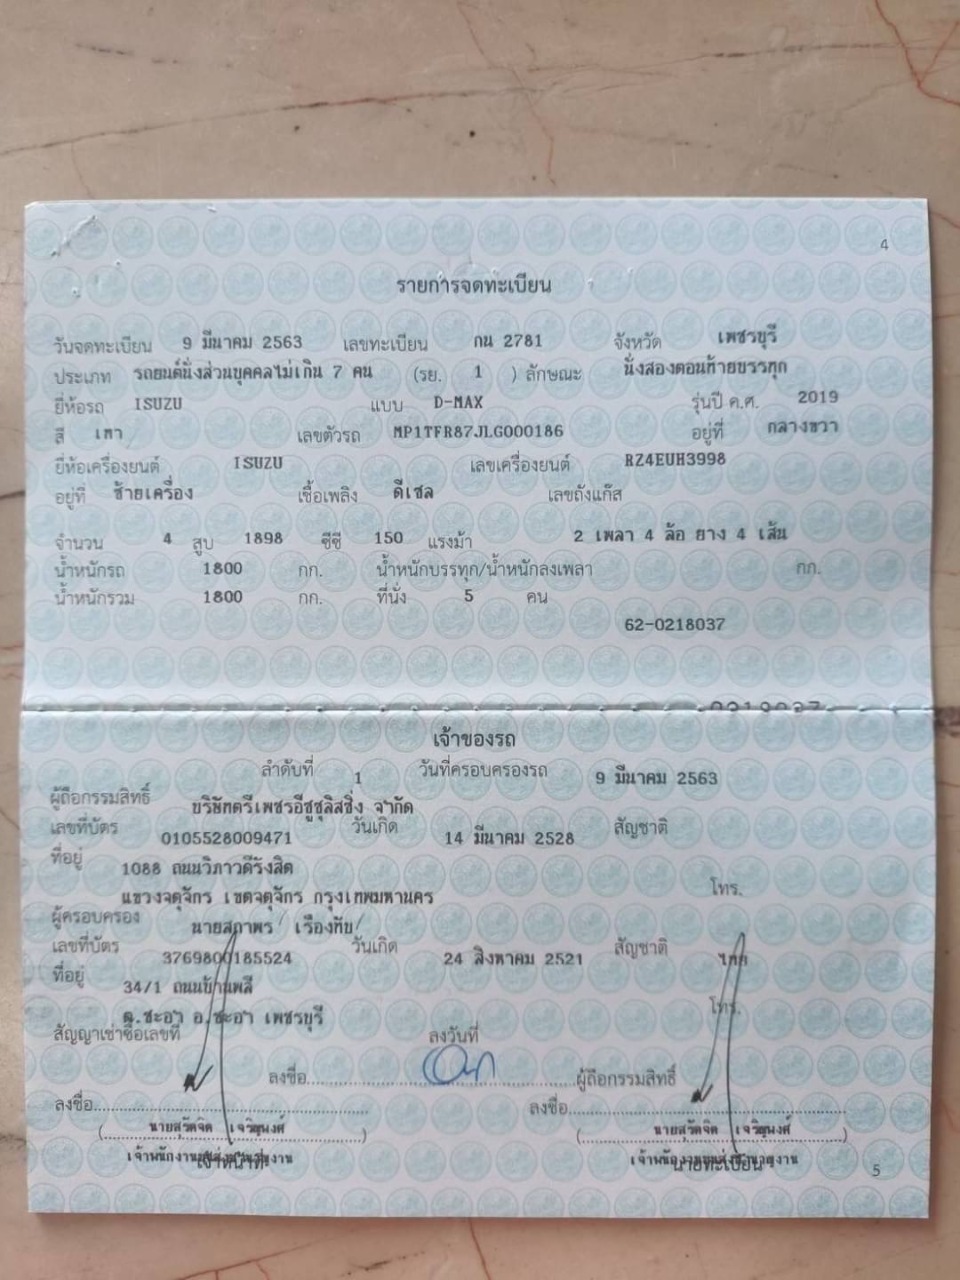 4
รายการจดทะเบียน
วันจดทะเบียน 9 มีนาคม 2563 เลขทะเบียน กน 2781 จังหวัด เพชรบุรี
ประเภท รถยนต์นั่งส่วนบุคคลไม่เกิน 7 คน (รย. 1 ) ลักษณะ นั่งสองตอนท้ายบรรทุก
ยี่ห้อรถ ISUZU แบบ D-MAX รุ่นปี ค.ศ. 2019
สี เทา เลขตัวรถ MP1TFR87JLG000186 อยู่ที่ กลางขวา
ยี่ห้อเครื่องยนต์ ISUZU เลขเครื่องยนต์ RZ4EUH3998
อยู่ที่ ซ้ายเครื่อง เชื้อเพลิง ดีเซล เลขถังแก๊ส
จำนวน 4 สูบ 1898 ซีซี 150 แรงม้า 2 เพลา 4 ล้อ ยาง 4 เส้น
น้ำหนักรถ 1800 กก. น้ำหนักบรรทุก/น้ำหนักลงเพลา กก.
น้ำหนักรวม 1800 กก. ที่นั่ง 5 คน
62-0218037
เจ้าของรถ
ลำดับที่ 1 วันที่ครอบครองรถ 9 มีนาคม 2563
ผู้ถือกรรมสิทธิ์ บริษัทตรีเพชรอีซูซุลิสซิ่ง จำกัด
เลขที่บัตร 0105528009471 วันเกิด 14 มีนาคม 2528 สัญชาติ
ที่อยู่ 1088 ถนนวิภาวดีรังสิต
แขวงจตุจักร เขตจตุจักร กรุงเทพมหานคร โทร.
ผู้ครอบครอง นายสถาพร/ เรืองทับ/
เลขที่บัตร 3769800185524 วันเกิด 24 สิงหาคม 2521 สัญชาติ ไทย
ที่อยู่ 34/1 ถนนบ้านพลี
ต.ชะอำ อ.ชะอำ เพชรบุรี โทร.
สัญญาเช่าซื้อเลขที่ ลงวันที่
ลงชื่อ ผู้ถือกรรมสิทธิ์
ลงชื่อ ลงชื่อ
(นายสุวัตจิต เจริญพงศ์) (นายสุวัตจิต เจริญพงศ์)
เจ้าพนักงานขนส่งชำนาญงาน เจ้าพนักงานขนส่งชำนาญงาน
เจ้าหน้าที่ นายทะเบียน
5